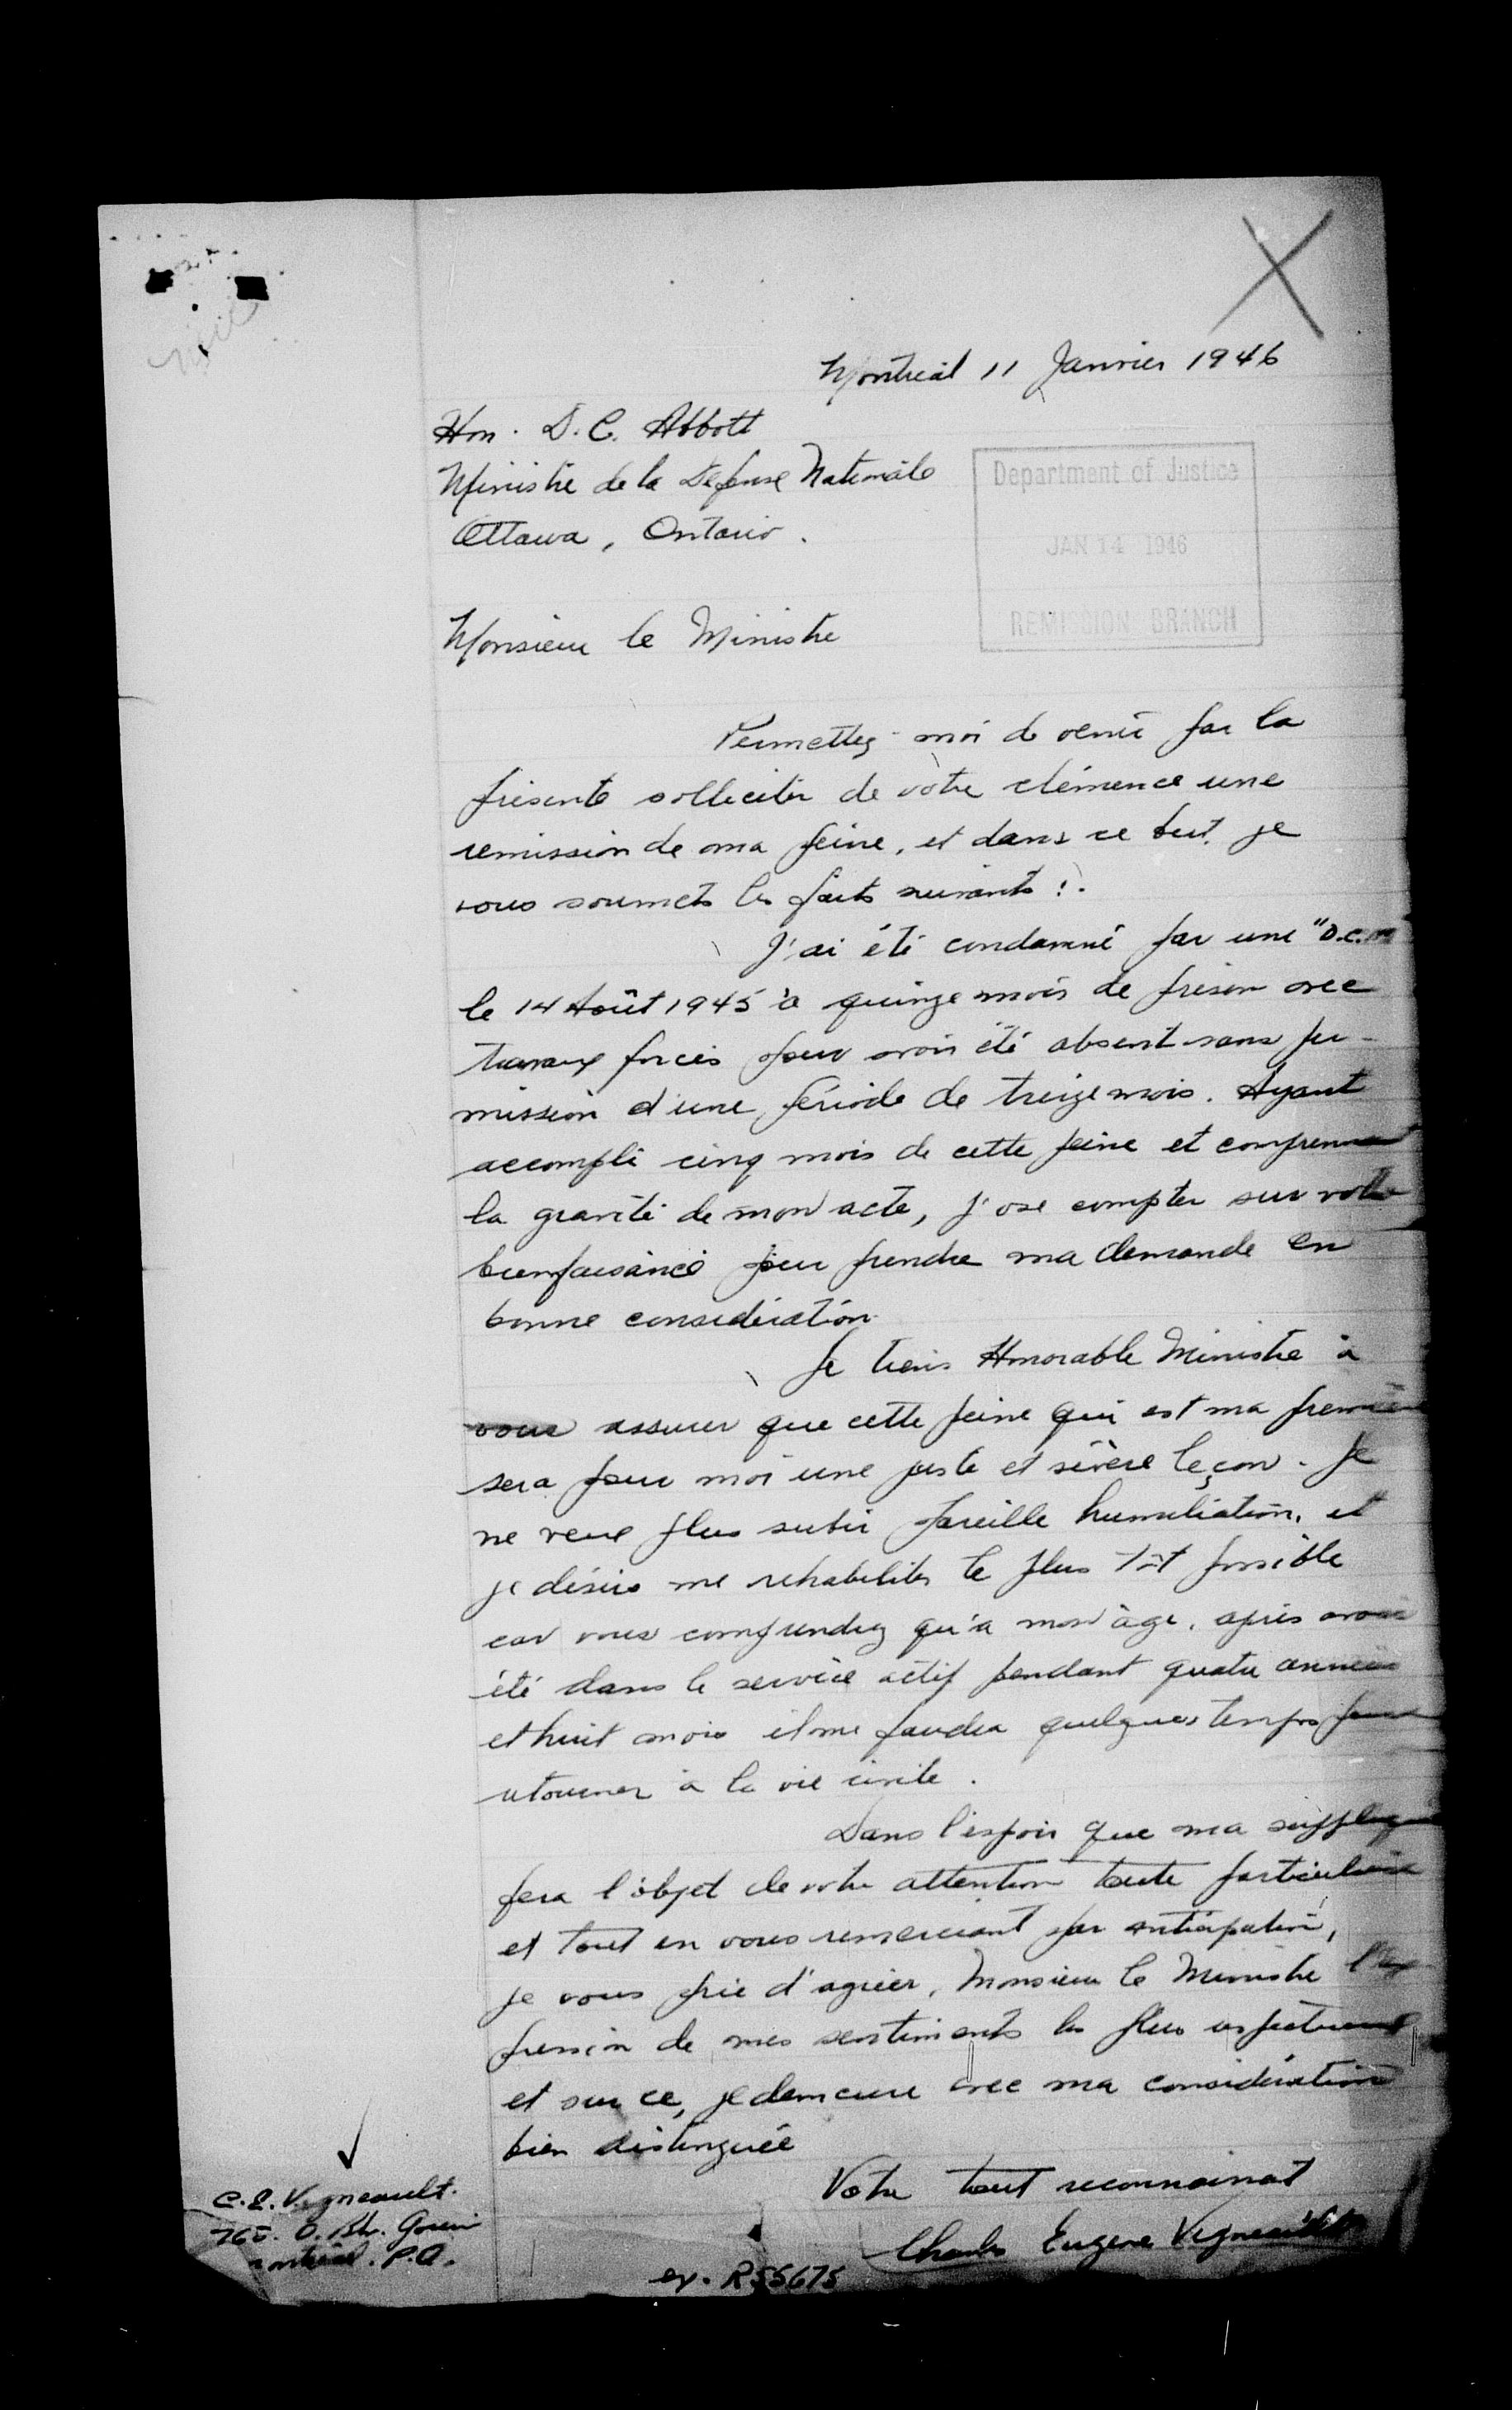 Montreal 11 Janvier 1946
Hon. D. C. Abbott
Ministre de la Défense Nationale
Ottawa, Ontario.
Department of Justice
JAN 14 1946
REMISSION BRANCH
Monsieur le Ministre
Permettez-moi de venir par la
présente solliciter de votre clémence une
remission de ma peine, et dans ce but, je
vous soumets les faits suivants :.
J'ai été condamné par une "D.C.M
le 14 Août 1945 à quinze mois de prison avec
travaux forcés pour avoir été absent sans per-
mission d'une période de treize mois. Ayant
accompli cinq mois de cette peine et comprenant
la gravité de mon acte, j'ose compter sur votre
bienfaisance pour prendre ma demande en
bonne considération.
Je tiens Honorable Ministre à
vous assurer que cette peine qui est ma première
sera pour moi une juste et sévère leçon. Je
ne veux plus subir pareille humiliation, et
je désire me rehabiliter le plus tôt possible
car vous comprendrez qu'a mon âge, après avoir
été dans le service actif pendant quatre années
et huit mois il me faudra quelques temps pour
retourner à la vie civile.
Dans l'espoir que ma supplique
fera l'objet de votre attention toute particulière
et tout en vous remerciant par anticipation,
je vous prie d'agréer, Monsieur le Ministre l'ex-
pression de mes sentiments les plus respectueux
et sur ce, je demeure avec ma considération
bien distinguée
Votre tout reconnaissant
Charles Eugène Vigneault
C. E. Vigneault.
765. O. Bl. Gouin
Montréal. P.Q.
ex. R55675